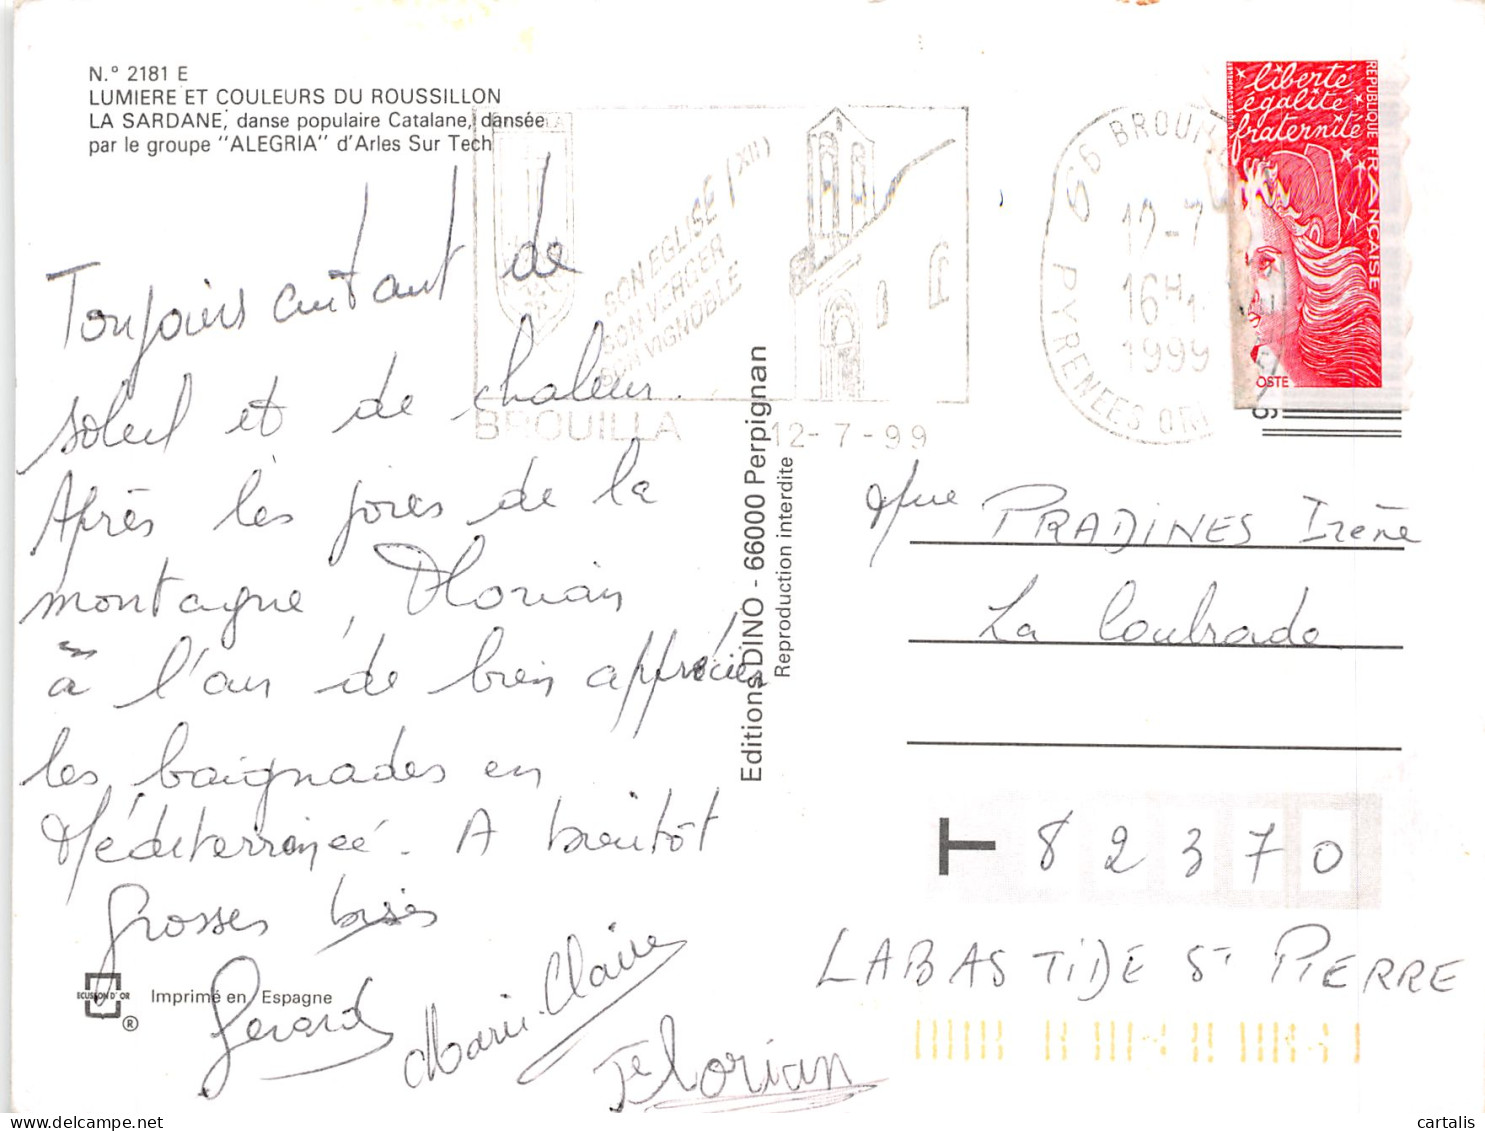 N.° 2181 E
LUMIERE ET COULEURS DU ROUSSILLON
LA SARDANE, danse populaire Catalane, dansée
par le groupe "ALEGRIA" d'Arles Sur Tech
Toujours autant de
soleil et de chaleur.
Après les joies de la
montagne, Florian
à l'air de bien apprécier
les baignades en
Méditerrannée. A bientôt
Grosses bises
Gerard
Marie-Claire
Florian
ECUSSON D'OR
®
Imprimé en Espagne
Editions DINO - 66000 Perpignan
Reproduction interdite
SON EGLISE (XII)
SON VERGER
SON VIGNOBLE
BROUILLA
12-7-99
66 BROUI
12-7
16H
1999
PYRENEES OR
liberté
égalité
fraternité
REPUBLIQUE FRANCAISE
OSTE
Mme PRADINES Irène
La Coulrade
T 82370
LABASTIDE ST PIERRE
cartalis